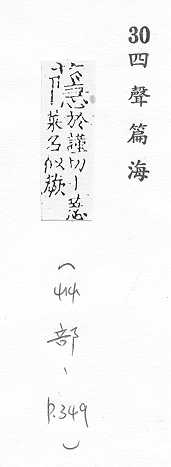 30四聲篇海
於謹切丨
菜名似蕨
（艸部、P.349）